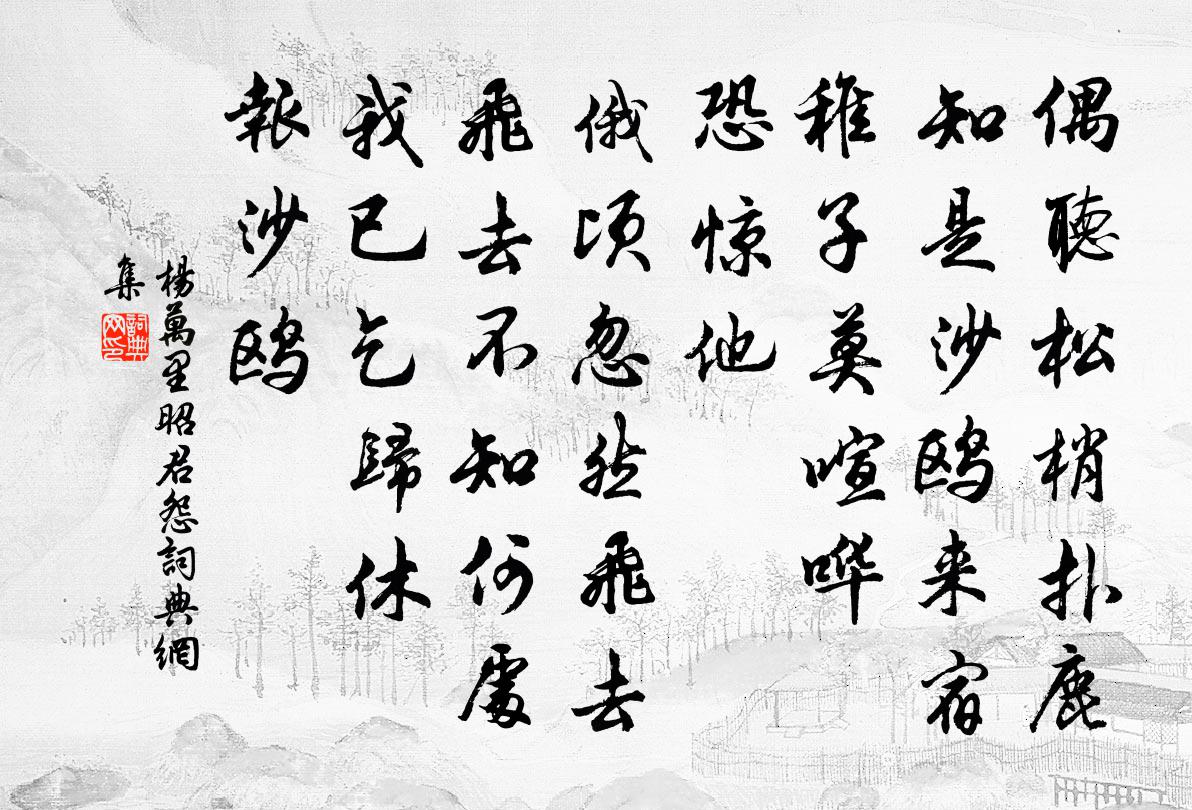 偶聽松梢扑鹿
知是沙鸥来宿
稚子莫喧哗
恐惊他
俄顷忽然飛去
飛去不知何處
我已乞歸休
報沙鸥
楊萬里昭君怨詞典網
集
詞典网印